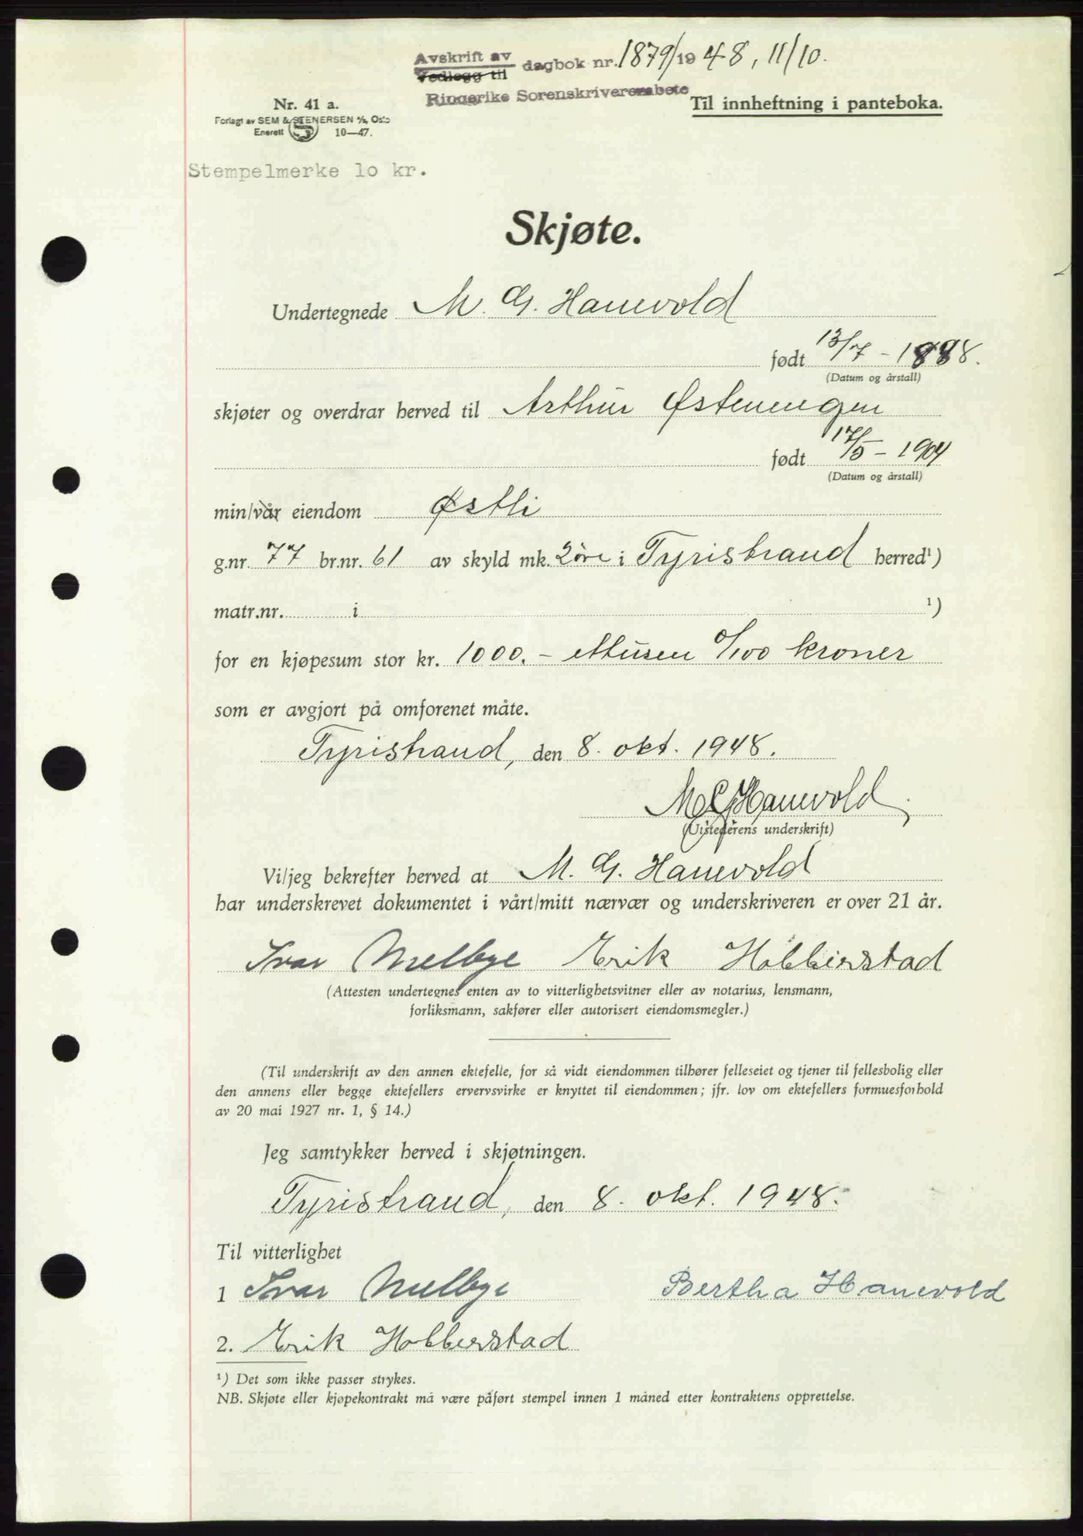 Avskrift av
Vedlegg til dagbok nr. 1879/1948, 11/10.
Ringerike Sorenskriverembete
Til innheftning i panteboka.
Nr. 41 a.
Forlagt av SEM & STENERSEN A/S, Oslo
Enerett 10—47.
Stempelmerke lo kr.
Skjøte.
Undertegnede M. G. Hanevold
født 13/7 - 1888.
(Datum og årstall)
skjøter og overdrar herved til Arthur Østenengen
født 17/5 - 1904
(Datum og årstall)
min/vår eiendom Østli
g.nr. 77 br.nr. 61 av skyld mk. 2 øre i Tyristrand herred¹)
matr.nr. i ¹)
for en kjøpesum stor kr. 1000.- ettusen 0/100 kroner
som er avgjort på omforenet måte.
Tyristrand, den 8. okt. 1948.
M G Hanevold
(Utstederens underskrift)
Vi/jeg bekrefter herved at M. G. Hanevold
har underskrevet dokumentet i vårt/mitt nærvær og underskriveren er over 21 år.
Ivar Melbye Erik Hobberstad
(Attesten undertegnes enten av to vitterlighetsvitner eller av notarius, lensmann,
forliksmann, sakfører eller autorisert eiendomsmegler.)
(Til underskrift av den annen ektefelle, for så vidt eiendommen tilhører felleseiet og tjener til fellesbolig eller
den annens eller begge ektefellers ervervsvirke er knyttet til eiendommen; jfr. lov om ektefellers formuesforhold
av 20 mai 1927 nr. 1, § 14.)
Jeg samtykker herved i skjøtningen.
Tyristrand, den 8. okt. 1948.
Til vitterlighet
1 Ivar Melbye Bertha Hanevold
2. Erik Hobberstad
¹) Det som ikke passer strykes.
NB. Skjøte eller kjøpekontrakt må være påført stempel innen 1 måned etter kontraktens opprettelse.